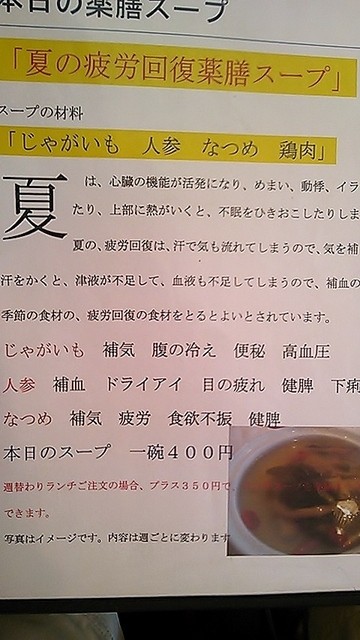 本日の薬膳スープ
「夏の疲労回復薬膳スープ」
スープの材料
「じゃがいも 人参 なつめ 鶏肉」
夏は、心臓の機能が活発になり、めまい、動悸、イラ
たり、上部に熱がいくと、不眠をひきおこしたりしま
夏の、疲労回復は、汗で気も流れてしまうので、気を補
汗をかくと、津液が不足して、血液も不足してしまうので、補血の
季節の食材の、疲労回復の食材をとるとよいとされています。
じゃがいも 補気 腹の冷え 便秘 高血圧
人参 補血 ドライアイ 目の疲れ 健脾 下痢
なつめ 補気 疲労 食欲不振 健脾
本日のスープ 一碗400円
週替わりランチご注文の場合、プラス350円で
できます。
写真はイメージです。内容は週ごとに変わります